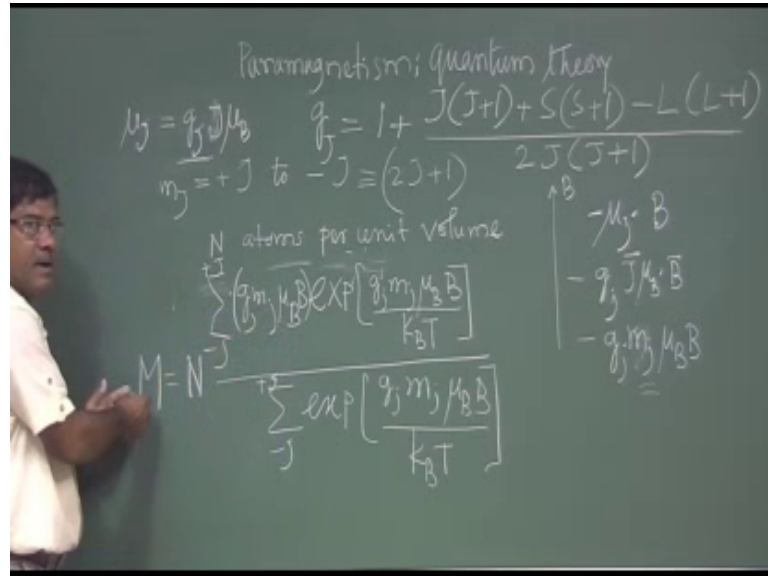 Paramagnetism; quantum theory
μ_J = g_J J̄ μ_B    g_J = 1 + (J(J+1) + S(S+1) − L(L+1)) / (2J(J+1))
m_J = +J to −J ≡ (2J+1)
N atoms per unit volume
M = N ∑_{−J}^{+J} (g_j m_j μ_B B) exp[g_j m_j μ_B B / k_B T] / ∑_{−J}^{+J} exp[g_j m_j μ_B B / k_B T]
↑B
−μ_J · B
− g_j J̄ μ_B · B̄
− g_j m_j μ_B B